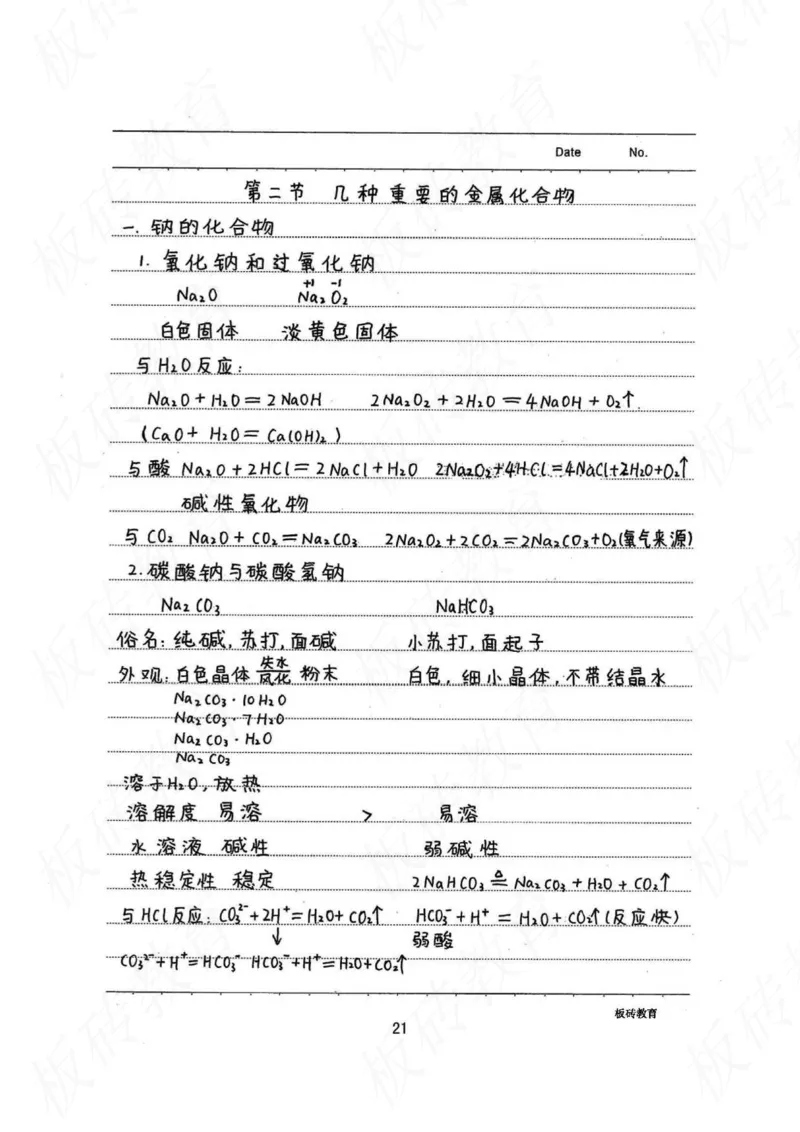 Date No.
第二节 几种重要的金属化合物
一. 钠的化合物
1. 氧化钠和过氧化钠
Na₂O Na₂O₂ +1 -1
白色固体 淡黄色固体
与H₂O反应:
Na₂O + H₂O = 2NaOH 2Na₂O₂ + 2H₂O = 4NaOH + O₂↑
(CaO + H₂O = Ca(OH)₂)
与酸 Na₂O + 2HCl = 2NaCl + H₂O 2Na₂O₂ + 4HCl = 4NaCl + 2H₂O + O₂↑
碱性氧化物
与CO₂ Na₂O + CO₂ = Na₂CO₃ 2Na₂O₂ + 2CO₂ = 2Na₂CO₃ + O₂(氧气来源)
2. 碳酸钠与碳酸氢钠
Na₂CO₃ NaHCO₃
俗名: 纯碱, 苏打, 面碱 小苏打, 面起子
外观: 白色晶体 失水 风化 粉末 白色, 细小晶体, 不带结晶水
Na₂CO₃·10H₂O
Na₂CO₃·7H₂O
Na₂CO₃·H₂O
Na₂CO₃
溶于H₂O, 放热
溶解度 易溶 > 易溶
水溶液 碱性 弱碱性
热稳定性 稳定 2NaHCO₃ ≜ Na₂CO₃ + H₂O + CO₂↑
与HCl反应: CO₃²⁻ + 2H⁺ = H₂O + CO₂↑ HCO₃⁻ + H⁺ = H₂O + CO₂↑(反应快)
↓ 弱酸
CO₃²⁻ + H⁺ = HCO₃⁻ HCO₃⁻ + H⁺ = H₂O + CO₂↑
板砖教育
21